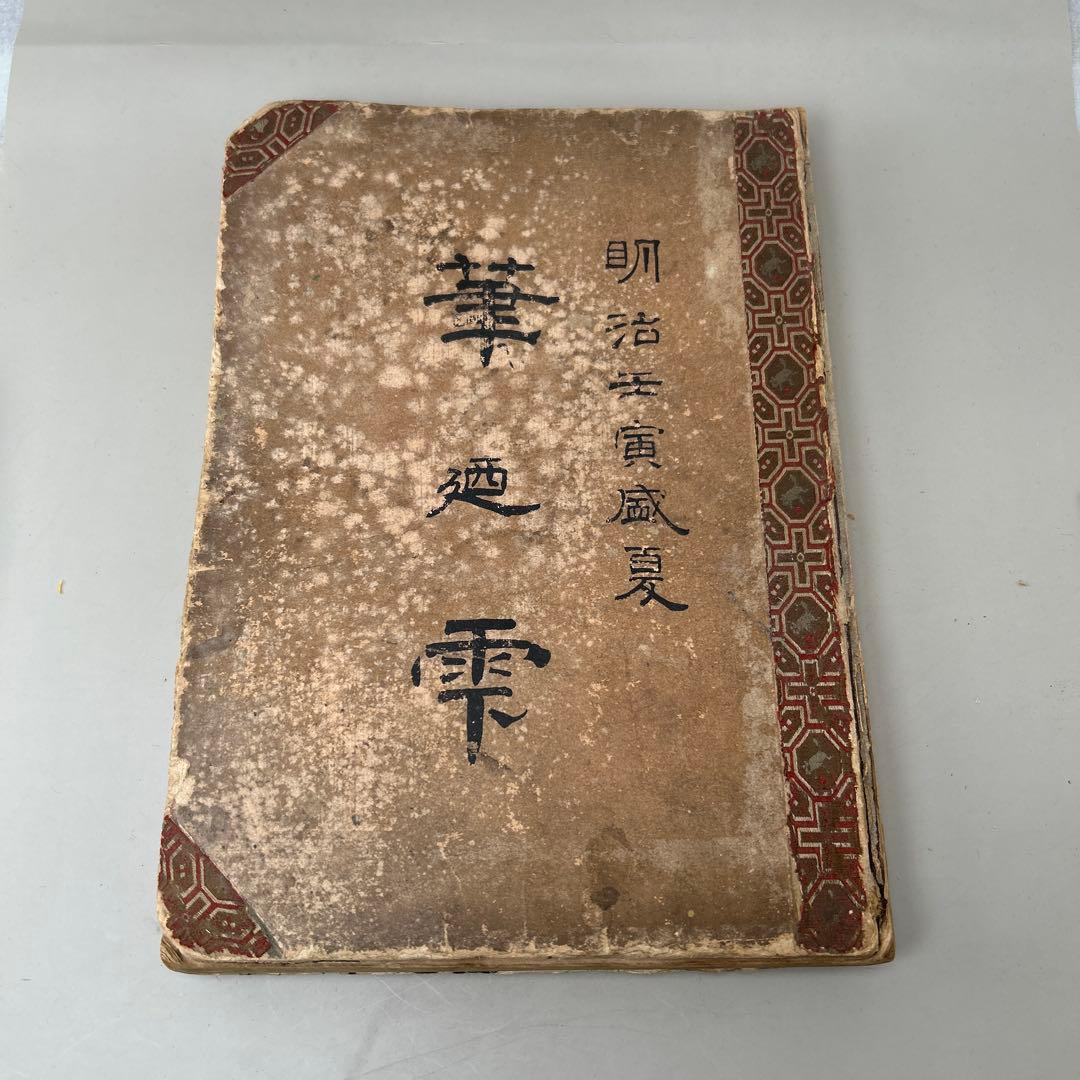 明治壬寅盛夏
華廼雫